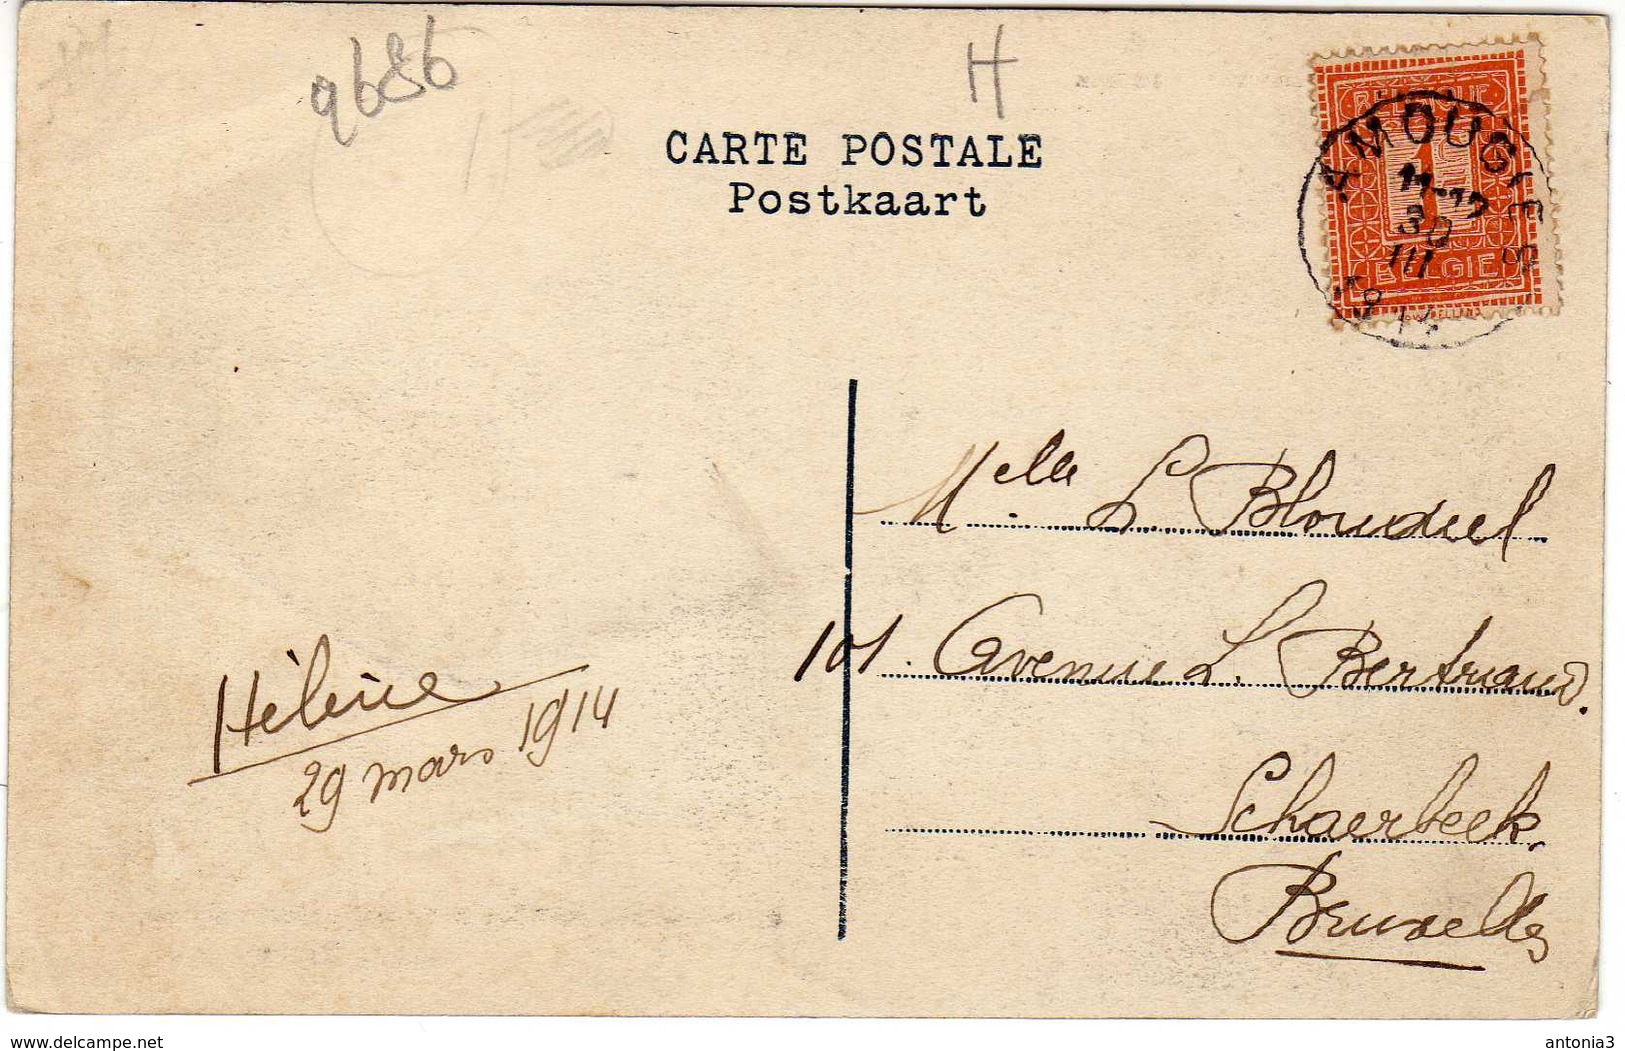 9686
H
CARTE POSTALE
Postkaart
BELGIQUE
1
BELGIË
AMOUGIES
11-12
30
III
1914
Melle L. Blondiel
101. Avenue L. Bertrand.
Schaerbeek.
Bruxelles
Hélène
29 mars 1914
www.delcampe.net
antonia3